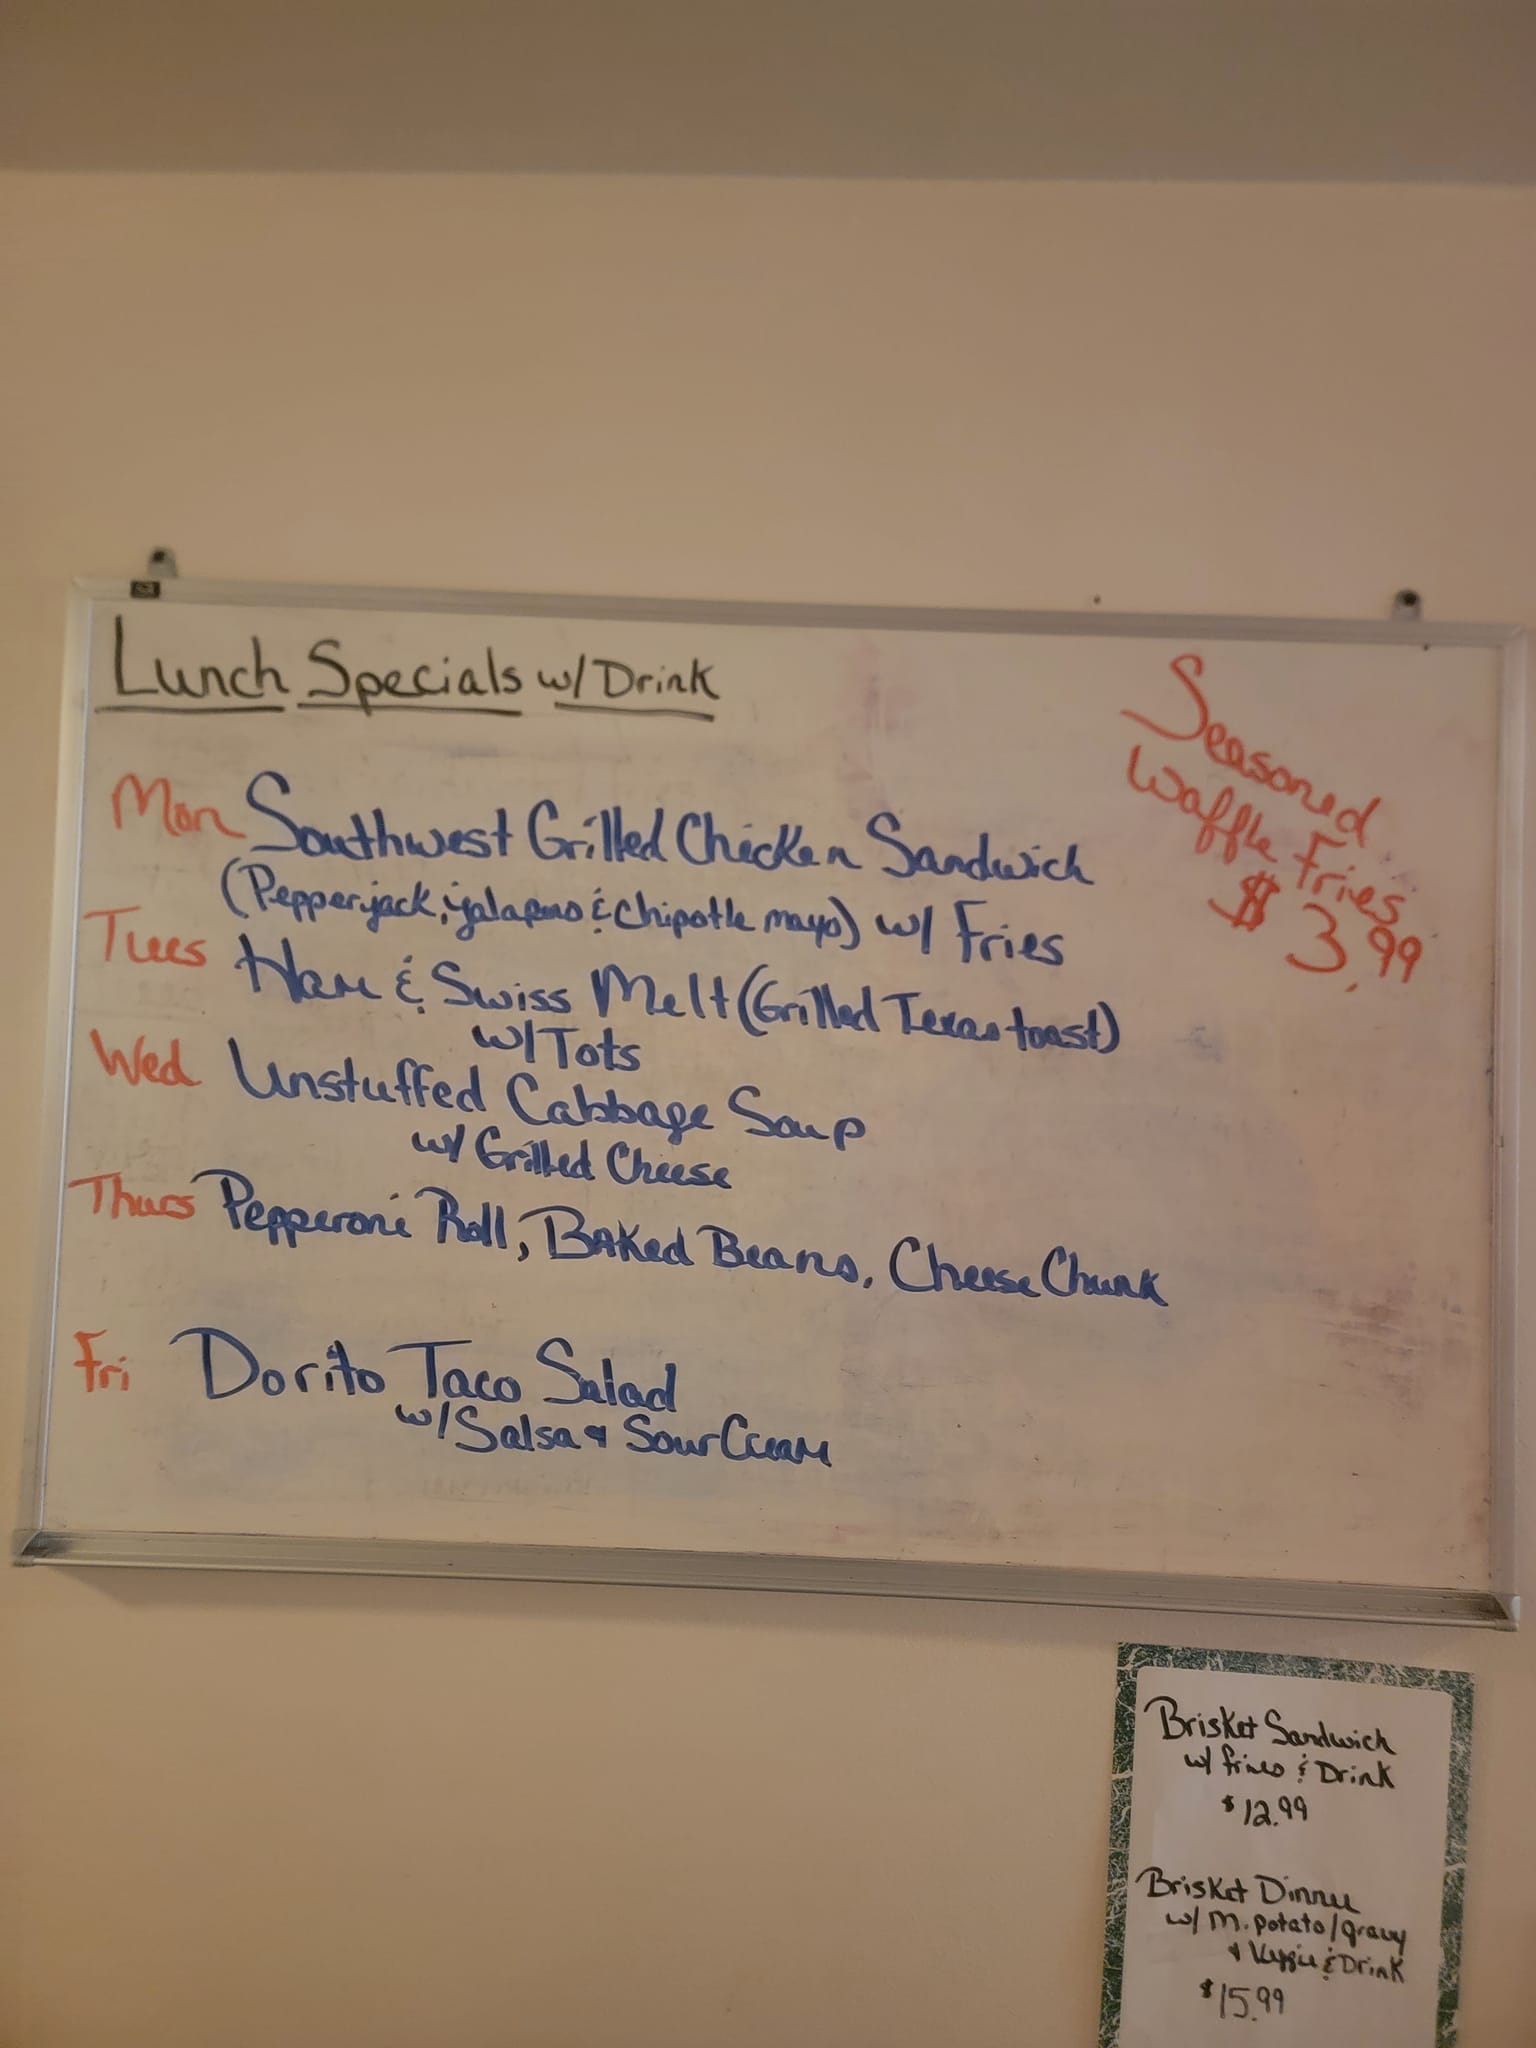 Lunch Specials w/ Drink
Seasoned
Waffle Fries
$3.99
Mon Southwest Grilled Chicken Sandwich
(Pepperjack, jalapeno & chipotle mayo) w/ Fries
Tues Ham & Swiss Melt (Grilled Texas toast)
w/ Tots
Wed Unstuffed Cabbage Soup
w/ Grilled Cheese
Thurs Pepperoni Roll, Baked Beans, Cheese Chunk
Fri Dorito Taco Salad
w/ Salsa & Sour Cream
Brisket Sandwich
w/ fries & Drink
$12.99
Brisket Dinner
w/ M. potato/gravy
& Veggie & Drink
$15.99